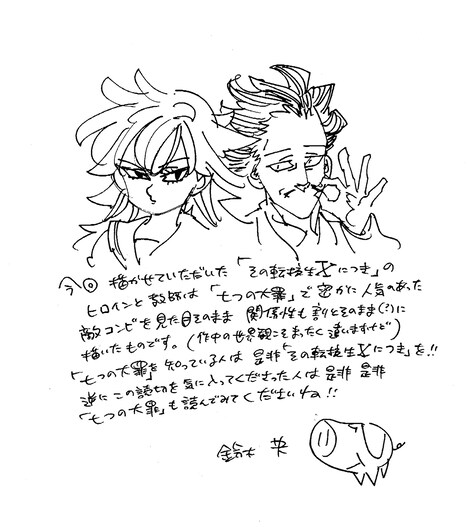 今回 描かせていただいた「その転校生Xにつき」の
ヒロインと教師は「七つの大罪」で密かに人気のあった
敵コンビを見た目そのまま 関係性も割とそのまま(?)に
描いたものです。(作中の世界観こそまったく違いますけど)
「七つの大罪」を知っている人は 是非「その転校生Xにつき」を!!
逆にこの読切を気に入ってくださった人は是非 是非
「七つの大罪」も読んでみてくださいね!!
鈴木 央